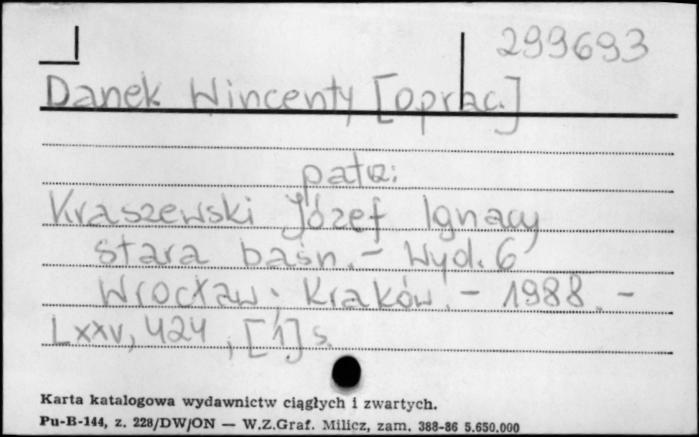 299693
Danek Wincenty [oprac.]
patrz:
Kraszewski Józef Ignacy
stara baśn. - Wyd. 6
Wrocław; Kraków. - 1988. -
Lxxv, 424, [1] s.
Karta katalogowa wydawnictw ciągłych i zwartych.
Pu-B-144, z. 228/DW/ON — W.Z.Graf. Milicz, zam. 388-86 5.650.000